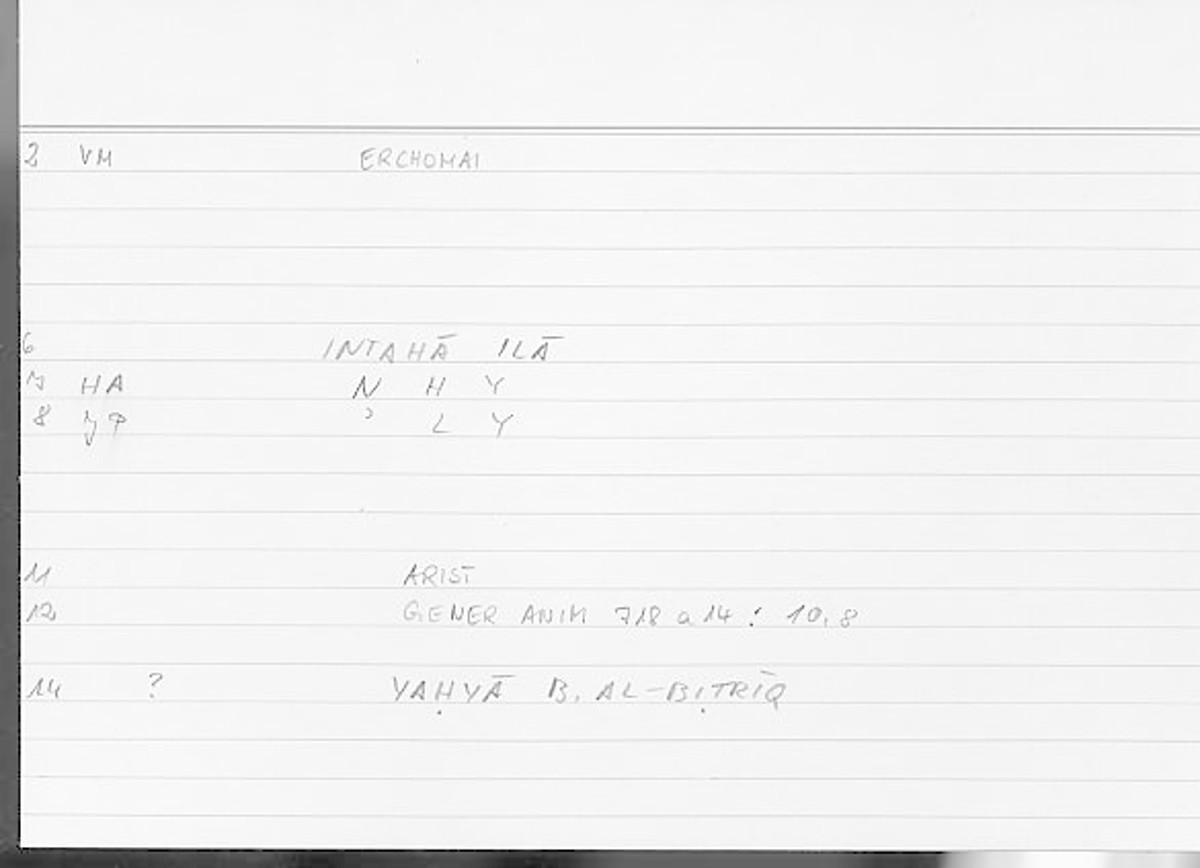 2 VM ERCHOMAI
6 INTAHĀ ILĀ
7 HA N H Y
8 ʾ L Y
11 ARIST
12 GENER ANIM 718 a 14 : 10,8
14 ? YAḤYĀ B. AL-BIṬRĪQ